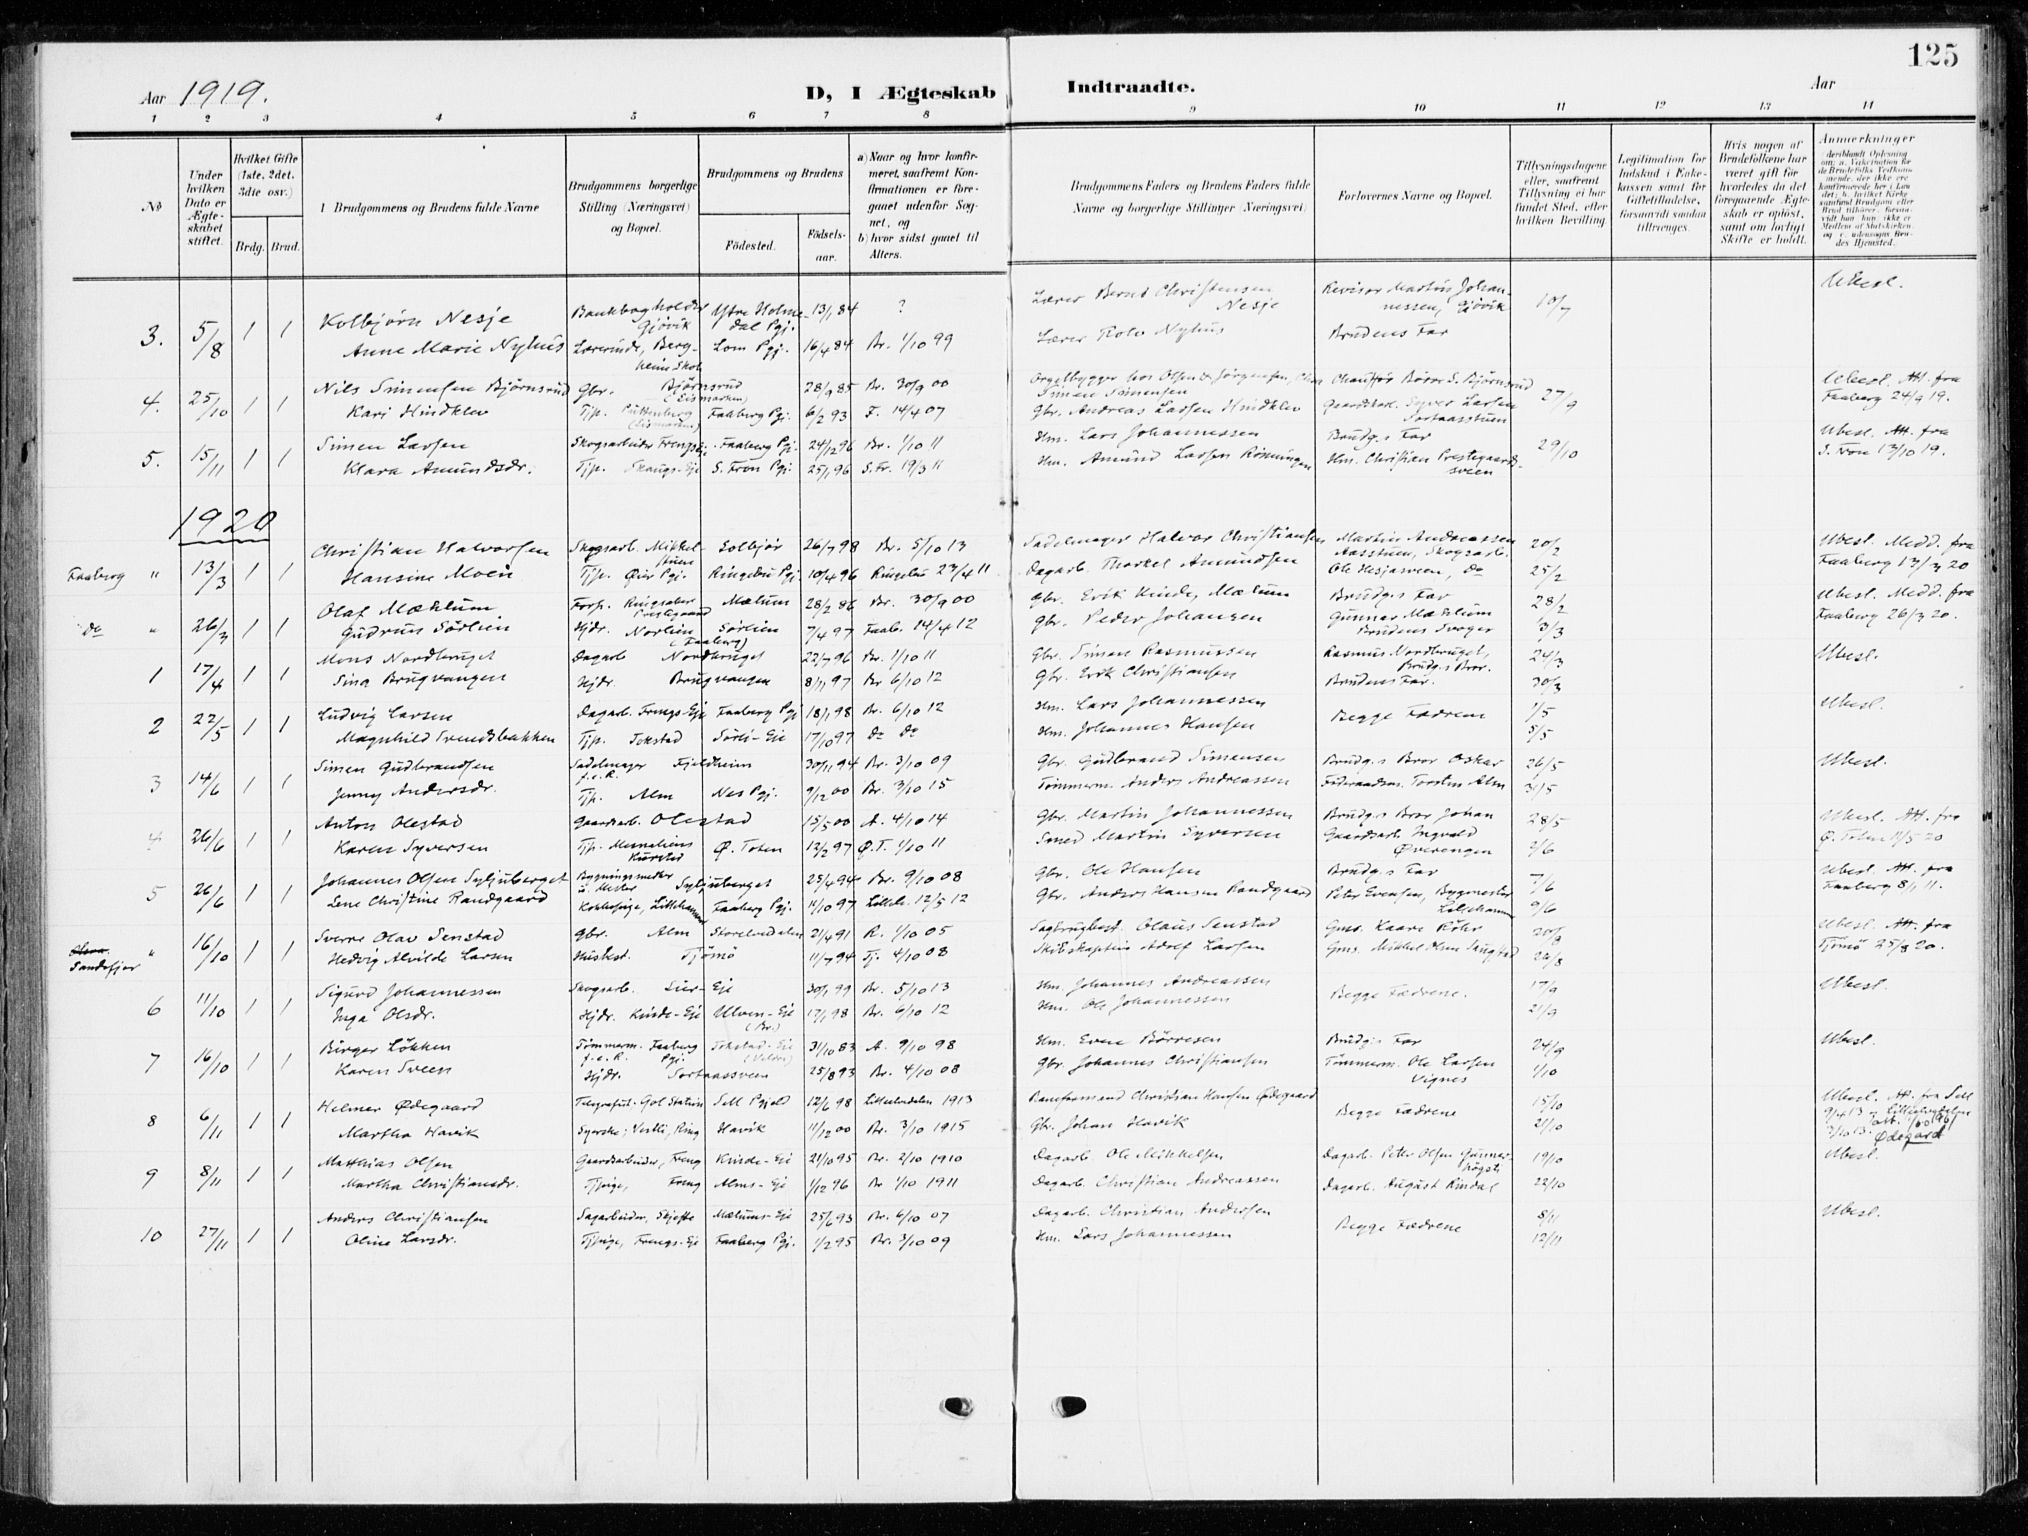 125
Aar 1919. D, I Ægteskab Indtraadte. Aar
1 2 3 4 5 6 7 8 9 10 11 12 13 14
№ Under hvilken Dato er Ægteskabet stiftet. Hvilket Gifte (1ste, 2det, 3die osv.) Brdg. Brud. 1 Brudgommens og Brudens fulde Navne Brudgommens borgerlige Stilling (Næringsvei) og Bopæl. Brudgommens og Brudens Födested. Födsels-aar. a) Naar og hvor konfirmeret, saafremt Konfirmationen er foregaaet udenfor Sognet, og b) hvor sidst gaaet til Alters. Brudgommens Faders og Brudens Faders fulde Navne og borgerlige Stillinger (Næringsvei) Forlovernes Navne og Bopæl. Tillysningsdagene eller, saafremt Tillysning ei har fundet Sted, efter hvilken Bevilling. Legitimation for Indskud i Enkekassen samt for Giftetilladelse, forsaavidt saadan tiltrænges. Hvis nogen af Brudefolkene har været gift för hvorledes da det foregaaende Ægteskab er oplöst, samt om lovligt Skifte er holdt. Anmerkninger
3. 5/8 1 1 Kolbjørn Nesje Bankbogholder Gjøvik Ytre Holmedal Pgj. 13/1 84 ? Lærer Bernt Christensen Nesje Revisor Martin Johannessen, Gjøvik 10/7 Ubesl.
Anne Marie Nyhus Lærerinde, Bergheim Skole Lom Pgj. 16/4 84 Br. 1/10 99 Lærer Rolv Nyhus Brudens Far
4. 25/10 1 1 Nils Simensen Bjørnsrud Gbr. Bjørnsrud 28/9 85 Br. 30/9 00 Orgelbygger hos Olsen & Jørgensen, Simen Simensen Chauffør Børre S. Bjørnsrud 27/9 Ubesl. Att. fra
Kari Hindklev Tjp. Faaberg Pgj. 6/2 93 F. 14/4 07 Gbr. Andreas Larsen Hindklev Gaardskarl. Syver Larsen Sortaasstuen Faaberg 24/9 19.
5. 15/11 1 1 Simen Larsen Skogsarbeider Frengs-Eje Faaberg Pgj. 24/12 96 Br. 1/10 11 Hm. Lars Johannessen Brudg.s Far 29/10 Ubesl. Att. fra
Klara Amundsdr. Tjp. Skaugs-Eje S. Fron Pgj. 25/1 96 S. Fr. 19/3 11 Hm. Amund Larsen Rønningen Hm. Christian Prestegaardssveen S. Fron 13/10 19.
1920
Faaberg " 13/3 1 1 Christian Halvorsen Skogsarb. Mikkelstuen Solbjør 26/7 98 Br. 5/10 13 Sadelmager Halvor Christiansen Martin Andreassen Aasstuen, Skogsarb. 20/2 Ubesl. Medd. fra
Hansine Moen Tjp. Øier Pgj. Ringebu Pgj 10/4 96 Ringebu 23/4 11 Dagarb. Thorkel Amundsen Ole Hesjasveen, Do 25/2 Faaberg 13/3 20
Do " 26/3 1 1 Olaf Mæhlum Forp. Ringsaker Prestegaard Mælum 28/2 86 Br. 30/9 00 Gbr. Erik Kinde, Mælum Brudg.s Far 28/2 Ubesl. Medd. fra
Gudrun Sørlien Hjdr. Norlien (Faaberg) Sørlien 7/4 97 Faab. 14/4 12 Gbr. Peder Johansen Gunnar Mæhlum Brudens Svoger 3/3 Faaberg 26/3 20.
1 17/4 1 1 Mons Nordbruget Dagarb Nordbruget 22/7 96 Br. 1/10 11 Gbr. Simen Rasmussen Rasmus Nordbruget, Brudg.s Bror. 24/3 Ubesl.
Sina Brugvangen Hjdr. Brugvangen 8/11 97 Br 6/10 12 Gbr. Erik Christiansen Brudens Far. 30/3
2 22/5 1 1 Ludvig Larsen Dagarb. Frengs-Eje Faaberg Pgj 18/1 98 Br. 6/10 12 Hm. Lars Johannessen Begge Fædrene 1/5 Ubesl.
Magnhild Svendsbakken Tjp. Tokstad Sørli-Eje 17/10 97 Do Do Hm. Johannes Hansen 5/5
3 14/6 1 1 Simen Gudbrandsen Sadelmager f.e.R. Fjeldheim 30/11 94 Br. 3/10 09 Gbr. Gudbrand Simensen Brudg.s Bror Oskar 26/5 Ubesl.
Jenny Andersdr. Tjp. Alm Nes Pgj. 9/12 00 Br. 3/10 15 Tømmerm. Anders Andreassen Torsten Alm 31/5
4 26/6 1 1 Anton Olestad Gaardsarb. Olestad 15/5 00 A. 4/10 14 Gbr. Martin Johannessen Brudg.s Bror Johan 28/5 Ubesl. Att. fra
Karen Syversen Tjp. Ø. Toten 12/2 97 Ø.T. 1/10 11 Smed Martin Syversen Gaardsarb. Ingvald Øverengen 2/6 Ø. Toten 11/5 20
5 26/6 1 1 Johannes Olsen Syljuberget Bygningssnekker u. Mester Syljuberget 25/4 94 Br. 9/10 08 Gbr. Ole Hansen Brudg.s Far 7/6 Ubesl. Att. fra
Lene Christine Randgaard Kokkepige, Lillehammer Faaberg Pgj. 11/10 97 Lilleh. 12/5 12 Gbr. Anders Hansen Randgaard Peter Evensen, Bygmester Lillehammer 9/6 Faaberg 8/1 11.
Sandefjor " 16/10 1 1 Sverre Olav Senstad Gbr. Alm Storelvedalen 21/4 91 R. 1/10 05 Sagbrugbest. Olaus Senstad Gms. Kaare Röhr 20/8 Ubesl. Att. fra
Hedvig Alvilde Larsen Husbest. Tjømø 11/7 94 Tj. 4/10 08 Skibskaptein Adolf Larsen Gms. Mikkel Skugstad 24/8 Tjømø 25/8 20.
6 11/10 1 1 Sigurd Johannessen Skogsarb. Lier-Eje 30/1 99 Br. 5/10 13 Hm. Johannes Andreassen Begge Fædrene. 17/9 Ubesl.
Inga Olsdr. Hjdr. Kinde-Eje Ulven-Eje (Br.) 17/1 98 Br. 6/10 12 Hm. Ole Johannessen 21/9
7 16/10 1 1 Birger Løkken Tømmerm. f.e.R. Faaberg Pgj. Tokstad-Eje (Veldre) 31/10 83 A. 9/10 98 Hm. Even Børresen Brudg.s Far 24/9 Ubesl.
Karen Sveen Hjdr. Sortaassveen 25/8 93 Br. 4/10 08 Gbr Johannes Christiansen Tömmerm. Ole Larsen Vignes 1/10
8 6/11 1 1 Helmer Ødegaard Telegrafist. Gol Station Sell Pgjeld 12/6 98 Lilleelvedalen 1913 Baneformand Christian Hansen Ødegaard Begge Fædrene 15/10 Ubesl. Att. fra Sell
Martha Havik Syerske; Vestli, Ring Havik 11/12 00 Br. 3/10 1915 Gbr. Johan Havik 21/10 9/4 13 og Lilleelvedalen 3/10 13. Ødegard
9 8/11 1 1 Matthias Olsen Gaardsarbeider, Freng Kinde-Eje 21/10 95 Br. 2/10 1910 Dagarb. Ole Mikkelsen Dagarb. Peter Olsen Gunnershøgst. 19/10 Ubesl.
Martha Christiansdr. Tjpige, Freng Alms-Eje 1/12 96 Br 1/10 1911 Dagarb. Christian Andreassen Dagarb. August Rindal 22/10
10 27/11 1 1 Anders Christiansen Sagarbeider, Skjefte Mælums-Eje 25/6 93 Br. 6/10 07 Dagarb. Christian Andersen Begge Fædrene 8/11 Ubesl.
Oline Larsdr. Tjpige, Frengs-Eje Faaberg Pgj. 1/2 95 Br. 3/10 09 Hm. Lars Johannessen 12/11